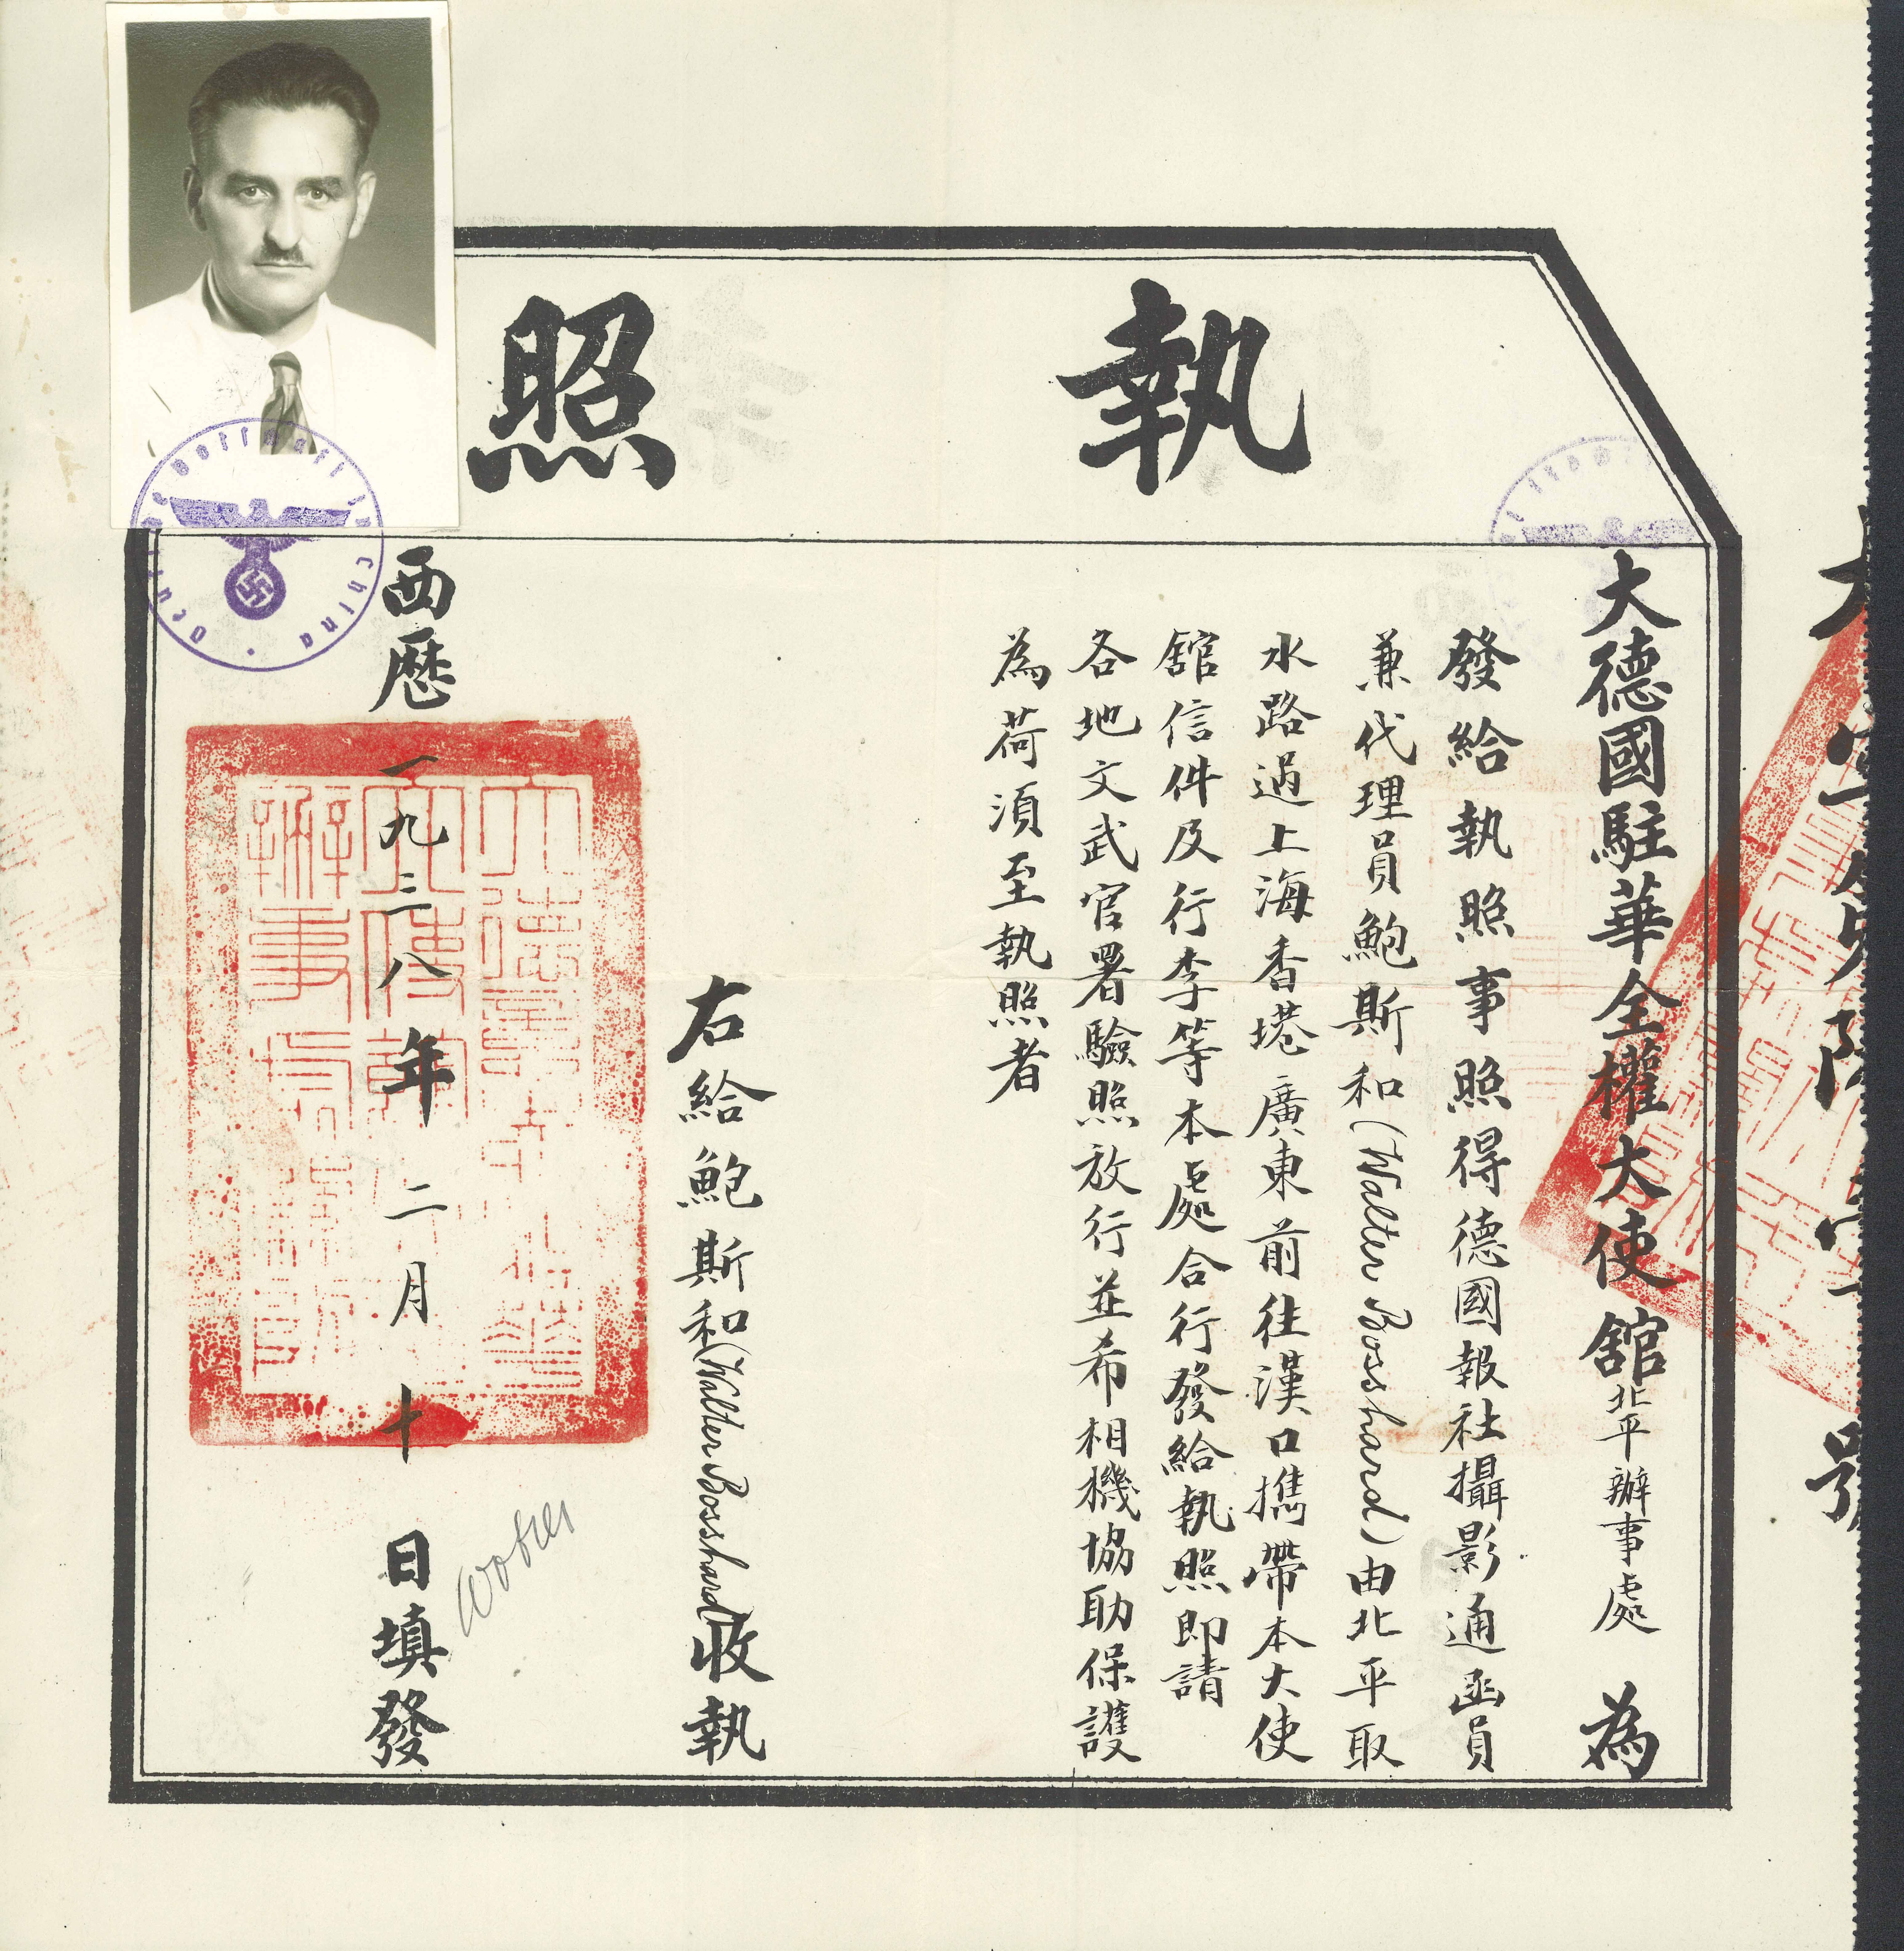 執照
大德國駐華全權大使舘北平辦事處 為
發給執照事照得德國報社攝影通函員
兼代理員鮑斯和(Walter Bosshard)由北平取
水路過上海香港廣東前往漢口携帶本大使
舘信件及行李等本處合行發給執照即請
各地文武官署驗照放行並希相機協助保護
為荷須至執照者
右給鮑斯和(Walter Bosshard)收執
西曆一九三八年二月十日填發
Deutsche Botschaft in China
號